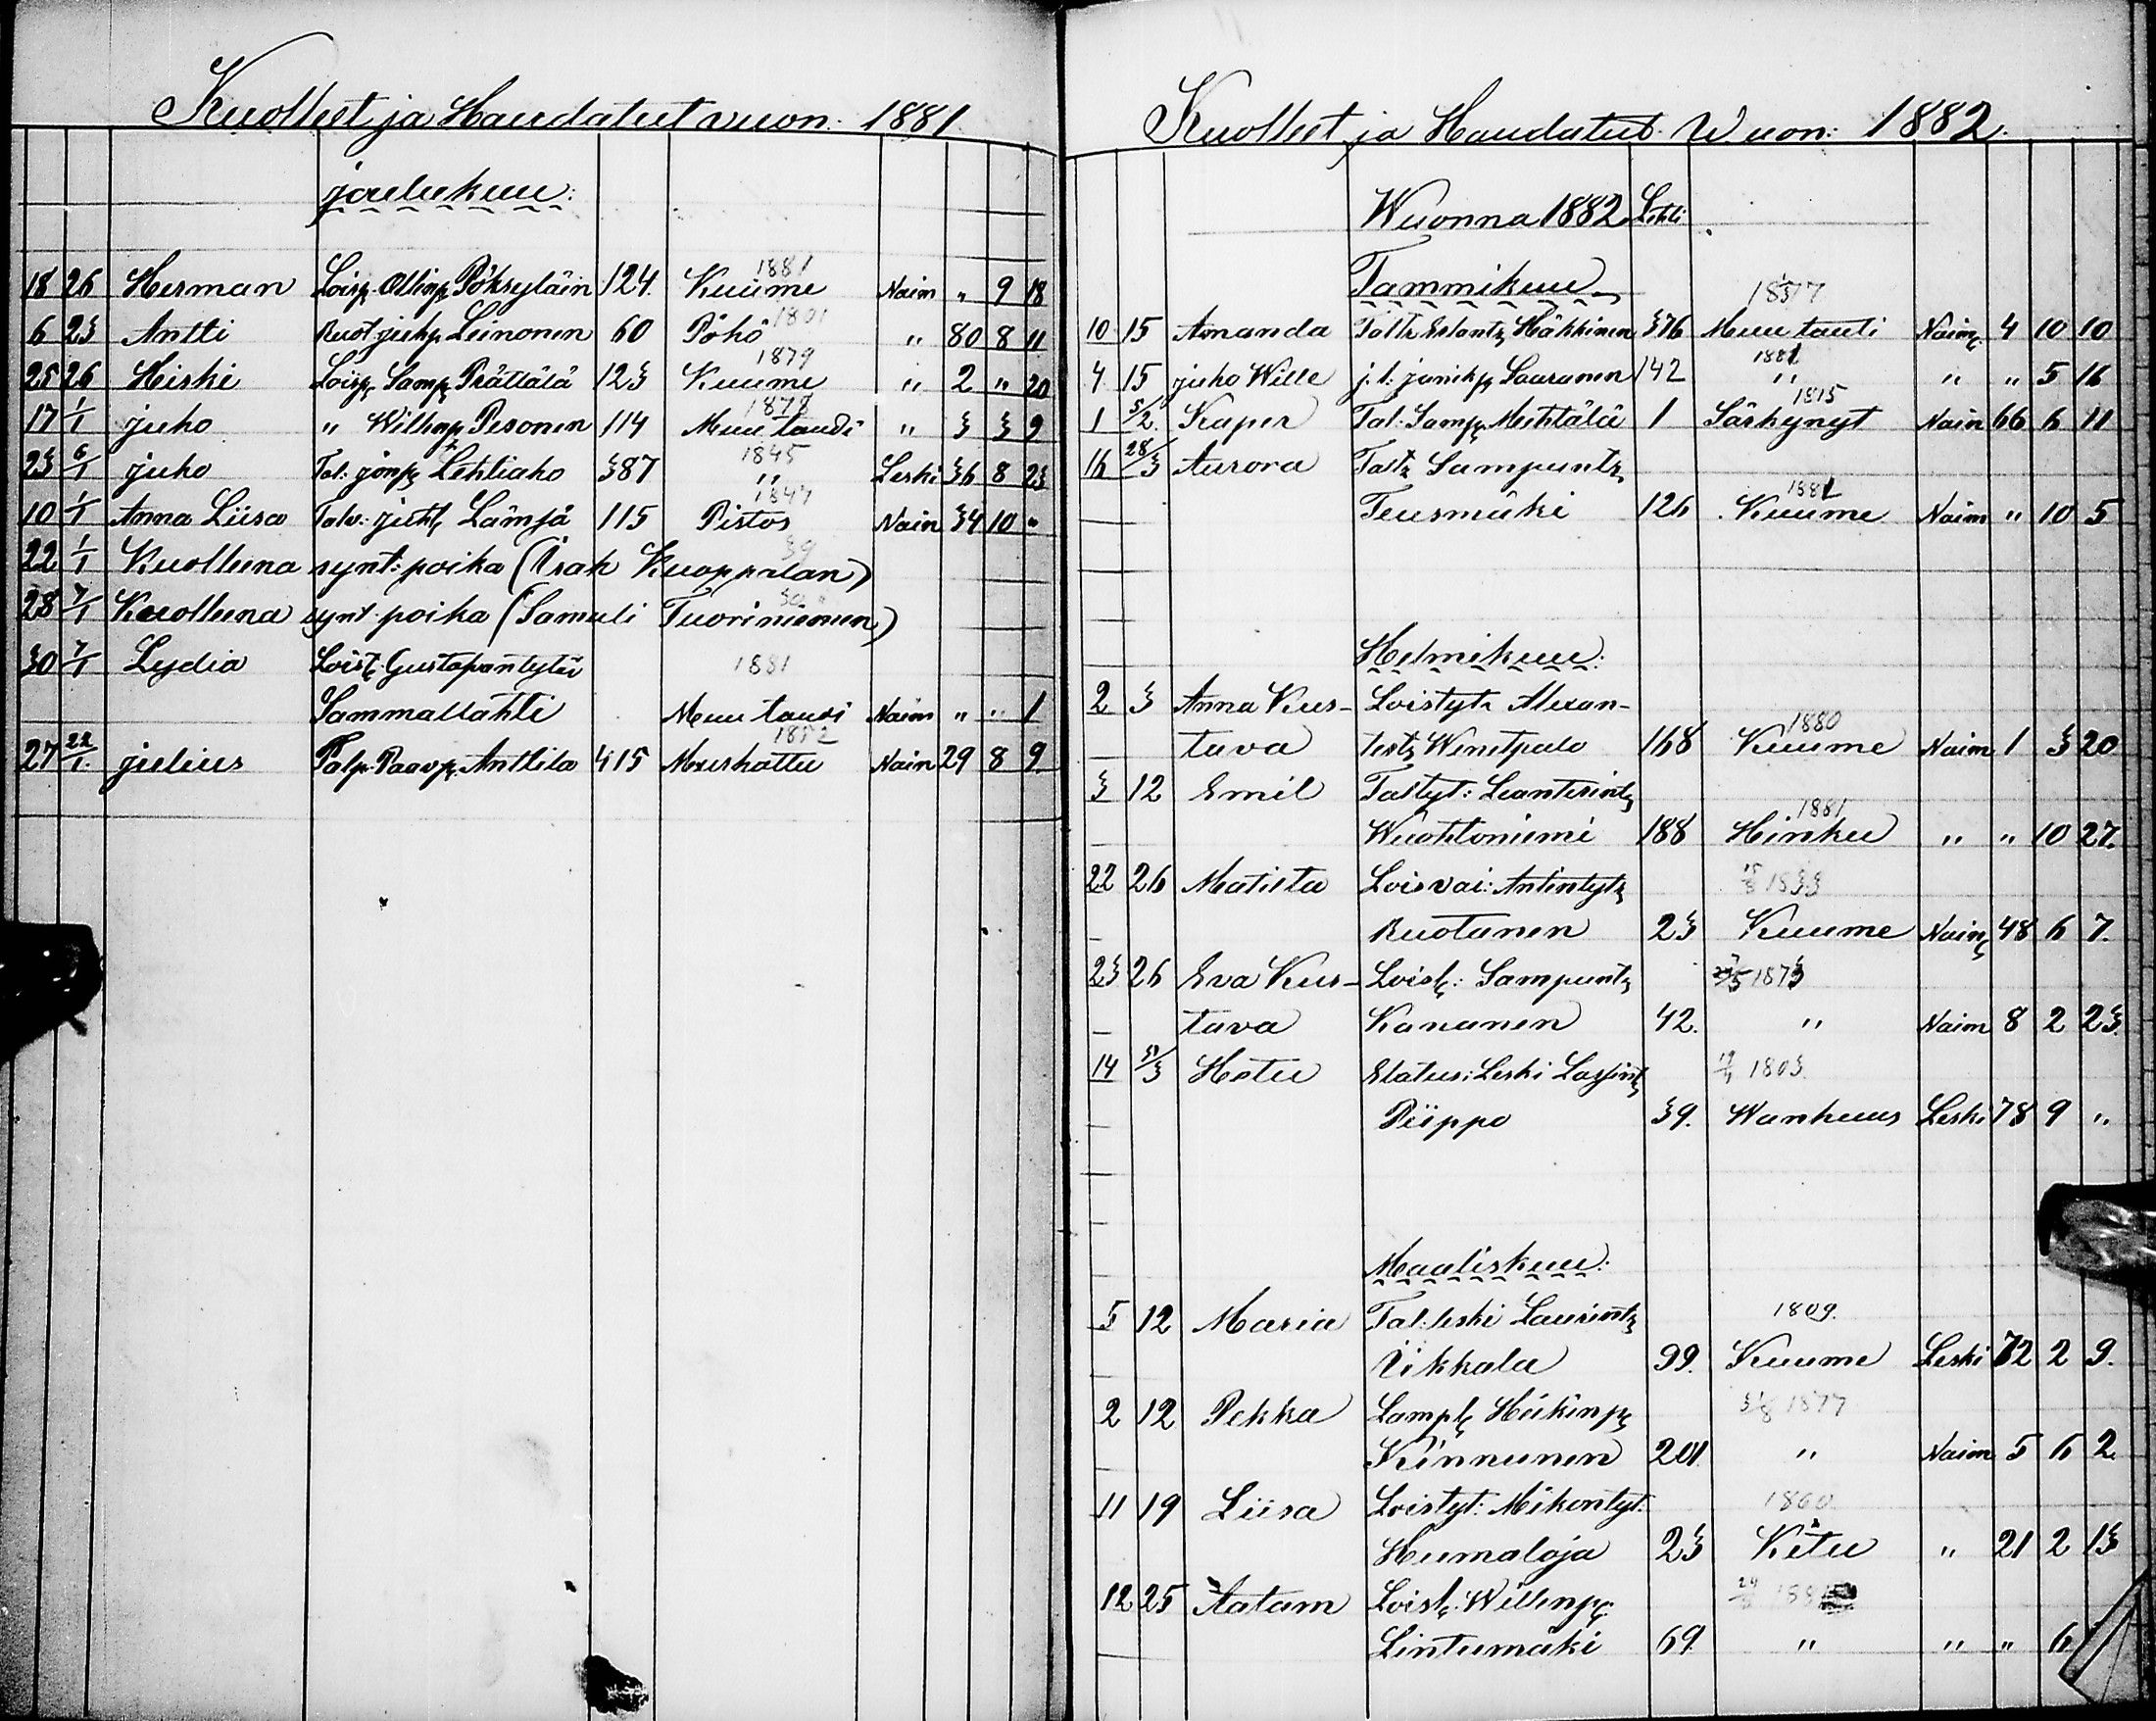 Kuolleet ja Haudatut vuon: 1881.
joulukuu:
18 26 Herman Loisp Ollinp Pöksyläin 124. Kuume 1881 Naim " 9 18
6 23 Antti Ruot juhp Leinonen 60 Pöhö 1801 " 80 8 11
25 26 Hiski Loisp Samp Prättälä 123 Kuume 1879 " 2 " 20
17 1/1 juho " Willenp Pesonen 114 Muu taudi 1878 " 3 3 9
23 6/1 juho Tal: jönp Lehtiaho 387 " 1845 Leski 36 8 23
10 1/1 Anna Liisa Talv: juht Lämsä 115 Pistos 1847 Nain 34 10 "
22 1/1 Kuolleena synt: poika (Isak Kuoppalan) 39
28 7/1 Kuolleena synt poika (Samuli Tuoriniemen)
30 7/1 Lydia Loist Gustapantytär 1881
Sammallahti Muu taudi Naim " " 1
27 22/1. julius Talp. Paavp. Anttila 415 Murskattu 1852 Nain 29 8 9.
Kuolleet ja Haudatut Wuon: 1882.
Wuonna 1882. Lehti
Tammikuu 1877
10 15 Amanda Taltr Hākkinen 376 Muu tauti Naim 4 10 10
4 15 juho Wille j. l: junikp Sauranen 142 " 1881 " " 5 16
1 5/2. Kaper Tal: Samp Mehtälä 1 Särkynyt 1815 Nain 66 6 11
16 28/3 Aurora Taltr Sampuntr
Teusmäki 126 Kuume 1881 Naim " 10 5
Helmikuu:
2 3 Anna Kus- Loistytr Alexan-
tava tertr Wenetpalo 168 Kuume 1880 Naim 1 3 20
3 12 Emil Taltyt: Leanterintr
Wuohtoniemi 188 Hinku 1881 " " 10 27.
22 26 Matilta Loisvai: Antintytr 15/8 1833
Ruotanen 23 Kuume Nain 48 6 7.
23 26 Eva Kus- Loist: Sampuntr 1873
tava Kananen 42. " Naim 8 2 23.
14 5/3 Hetu Elatus: Leski Lassint 1803
Piippo 39. Wanhuus Leski 78 9 "
Maaliskuu:
5 12 Maria Tal: leski Laurintr 1809.
Uikkala 99. Kuume Leski 72 2 9.
2 12 Pekka Lampt Heikinp 31/8 1877
Kinnunen 201. " Naim 5 6 2
11 19 Liisa Loistyt: Mikontyt: 1860
Humaloja 23 Kitu " 21 2 13
12 25 Aatam Loist. Willenp: 24
Lintumäki 69. " " " 6